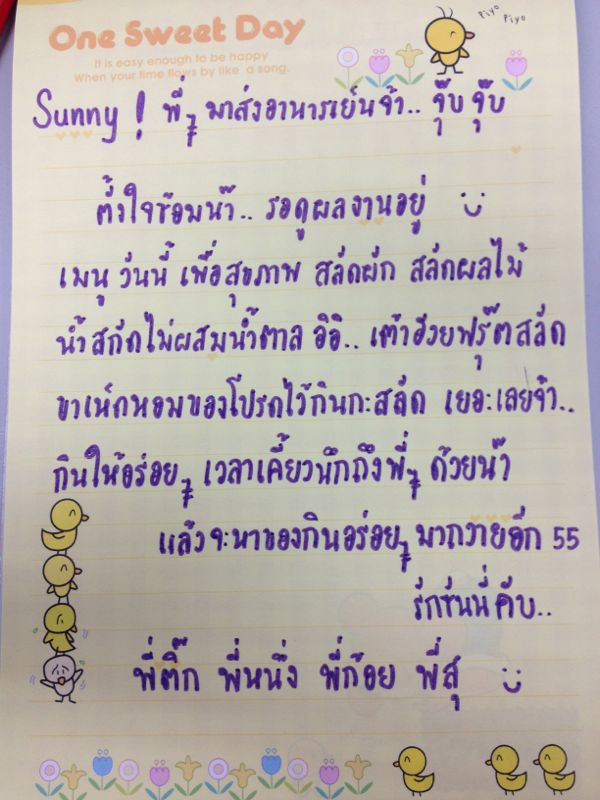 One Sweet Day
It is easy enough to be happy
When your time flows by like a song.
Piyo Piyo
Sunny ! พี่ๆ มาส่งอาหารเย็นจ้า.. จุ๊บ จุ๊บ
ตั้งใจซ้อมน๊า.. รอดูผลงานอยู่
เมนู วันนี้ เพื่อสุขภาพ สลัดผัก สลัดผลไม้
น้ำสกัดไม่ผสมน้ำตาล อิอิ.. เต้าฮวยฟรุ๊ตสลัด
ขาเห็ดหอมของโปรดไว้กินกะสลัด เยอะเลยจ้า..
กินให้อร่อยๆ เวลาเคี้ยวนึกถึงพี่ๆ ด้วยน๊า
แล้วจะหาของกินอร่อยๆ มาถวายอีก 55
รักซันนี่คับ..
พี่ติ๊ก พี่หนึ่ง พี่ก้อย พี่สุ